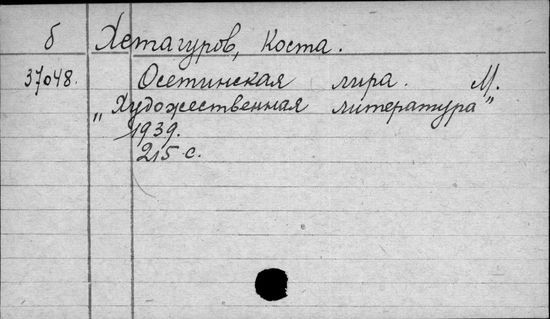 б Хетагуров, Коста.
37048. Осетинская лира. М.
„Художественная литература"
1939.
215 с.